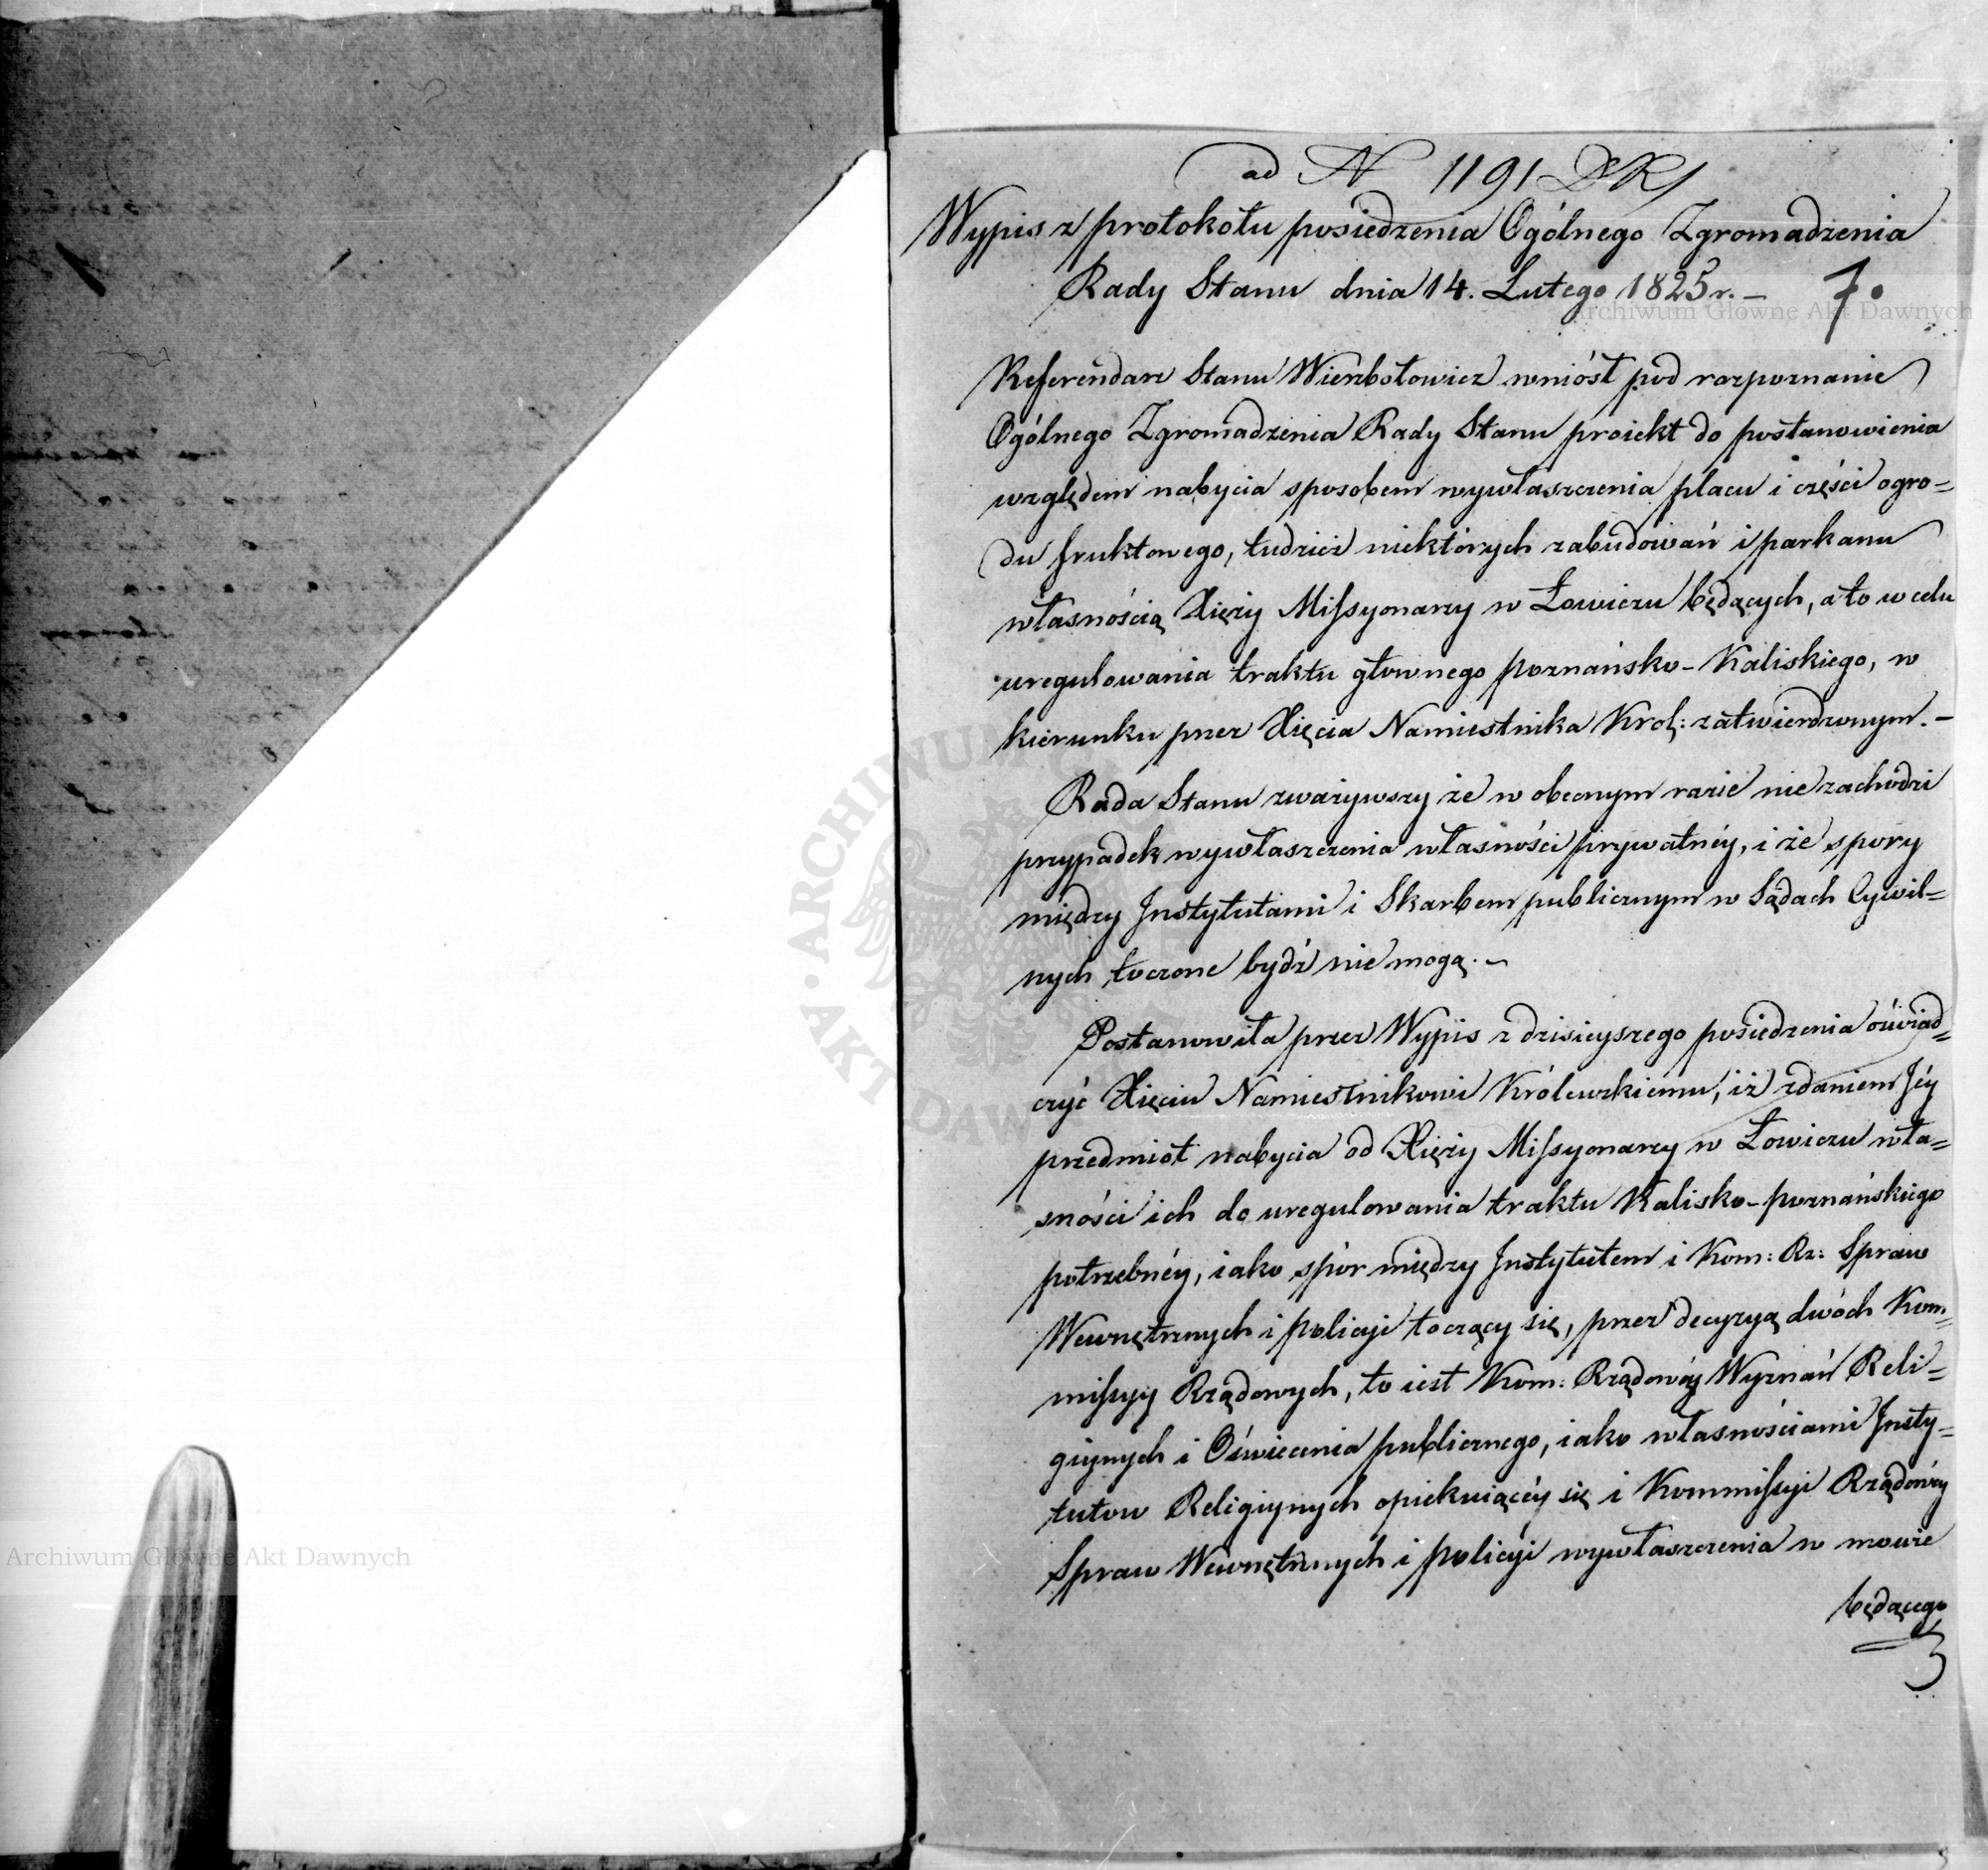 ad N 1191 DRS
Wypis z protokołu posiedzenia Ogólnego Zgromadzenia
Rady Stanu dnia 14. Lutego 1825 r. –
7.
Referendarz Stanu Wierzbołowicz wniósł pod rozpoznanie
Ogólnego Zgromadzenia Rady Stanu proiekt do postanowienia
względem nabycia sposobem wywłaszczenia placu i części ogro=
du fruktowego, tudzież niektórych zabudowań i parkanu
własnością Xięży Missyonarzy w Łowiczu będących, a to w celu
uregulowania traktu głownego poznańsko-Kaliskiego, w
kierunku przez Xięcia Namiestnika Krol: zatwierdzonym. –
Rada Stanu zważywszy że w obecnym razie nie zachodzi
przypadek wywłaszczenia własności prywatnéy, i że spory
między Instytutami i Skarbem publicznym w Sądach Cywil=
nych toczone bydź nie mogą. –
Postanowiła przez Wypis z dzisieyszego posiedzenia oświad=
czyć Xięciu Namiestnikowi Królewskiemu, iż zdaniem Jéy
przedmiot nabycia od Xięży Missyonarzy w Łowiczu wła=
sności ich do uregulowania traktu Kalisko-poznańskiego
potrzebnéy, iako spór między Instytutem i Kom: Rz: Spraw
Wewnętrznych i policyi toczący się, przez decyzyą dwóch Kom=
missyy Rządowych, to iest Kom: Rządowéy Wyznań Reli=
giynych i Oświecenia publicznego, iako własnościami Insty=
tutow Religiynych opiekuiącéy się i Kommissyi Rządowéy
Spraw Wewnętrznych i policyi wywłaszczenia w mowie
będącego
Archiwum Główne Akt Dawnych
Archiwum Główne Akt Dawnych